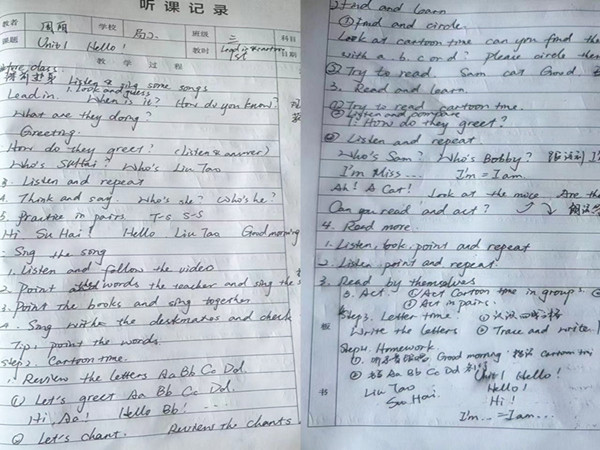 听课记录
教者 周丽 学校 局二 班级 三 科目
课题 Unit 1 Hello! 教时 日期
教学过程
Listen & sing some songs
Lead in. 1. Look and guess
When is it? How do you know?
What are they doing?
Greeting:
How do they greet? (Listen & answer)
Who's Su Hai? Who's Liu Tao
3. Listen and repeat
4. Think and say. Who's she? Who's he?
5. Practice in pairs T-S S-S
Hi Su Hai! Hello Liu Tao Good morning
Sing the song
1. Listen and follow the video
2. Point words the teacher and sing the
3. Point the books and sing together.
4. Sing withe the deskmates and check
Tip: point the words.
Step2 Cartoon time.
1. Review the letters Aa Bb Cc Dd.
① Let's greet Aa Bb Cc Dd.
Hi, Aa! Hello Bb! ....
② Let's chant. Review the chants
2. Find and learn
① Find and circle.
Look at cartoon time can you find the
with a. b. c or d? Please circle the
② Try to read. Sam cat Good
3. Read and learn.
① Try to read cartoon time.
Listen and compare
How do they greet?
Listen and repeat.
Who's Sam? Who's Bobby?
I'm Miss... I'm = I am.
Ah! A Cat! Look at the mice. Are the
Can you read and act?
4. Read more.
1. Listen, look, point and repeat
2. Listen point and repeat.
3. Read by themselves
5. Act. ① Act Cartoon time in groups.
② Act in pairs.
板 Step3. Letter time.
Write the letters ② Trace and write
Step4. Homework.
Good morning
Aa Bb Cc Dd
Unit 1 Hello!
书 Liu Tao Hello!
Su Hai. Hi!
I'm... = I am...